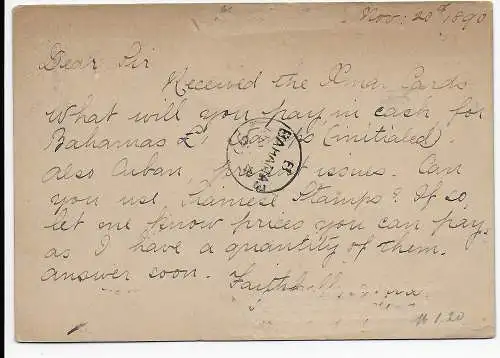 Nov: 20th 1890
Dear Sir
Received the Xmas Cards
What will you pay in cash for
Bahamas (initialed).
also Cuban issues. Can
you use Siamese Stamps? If so,
let me know prices you can pay,
as I have a quantity of them.
answer soon.
BAHAMAS
1.20